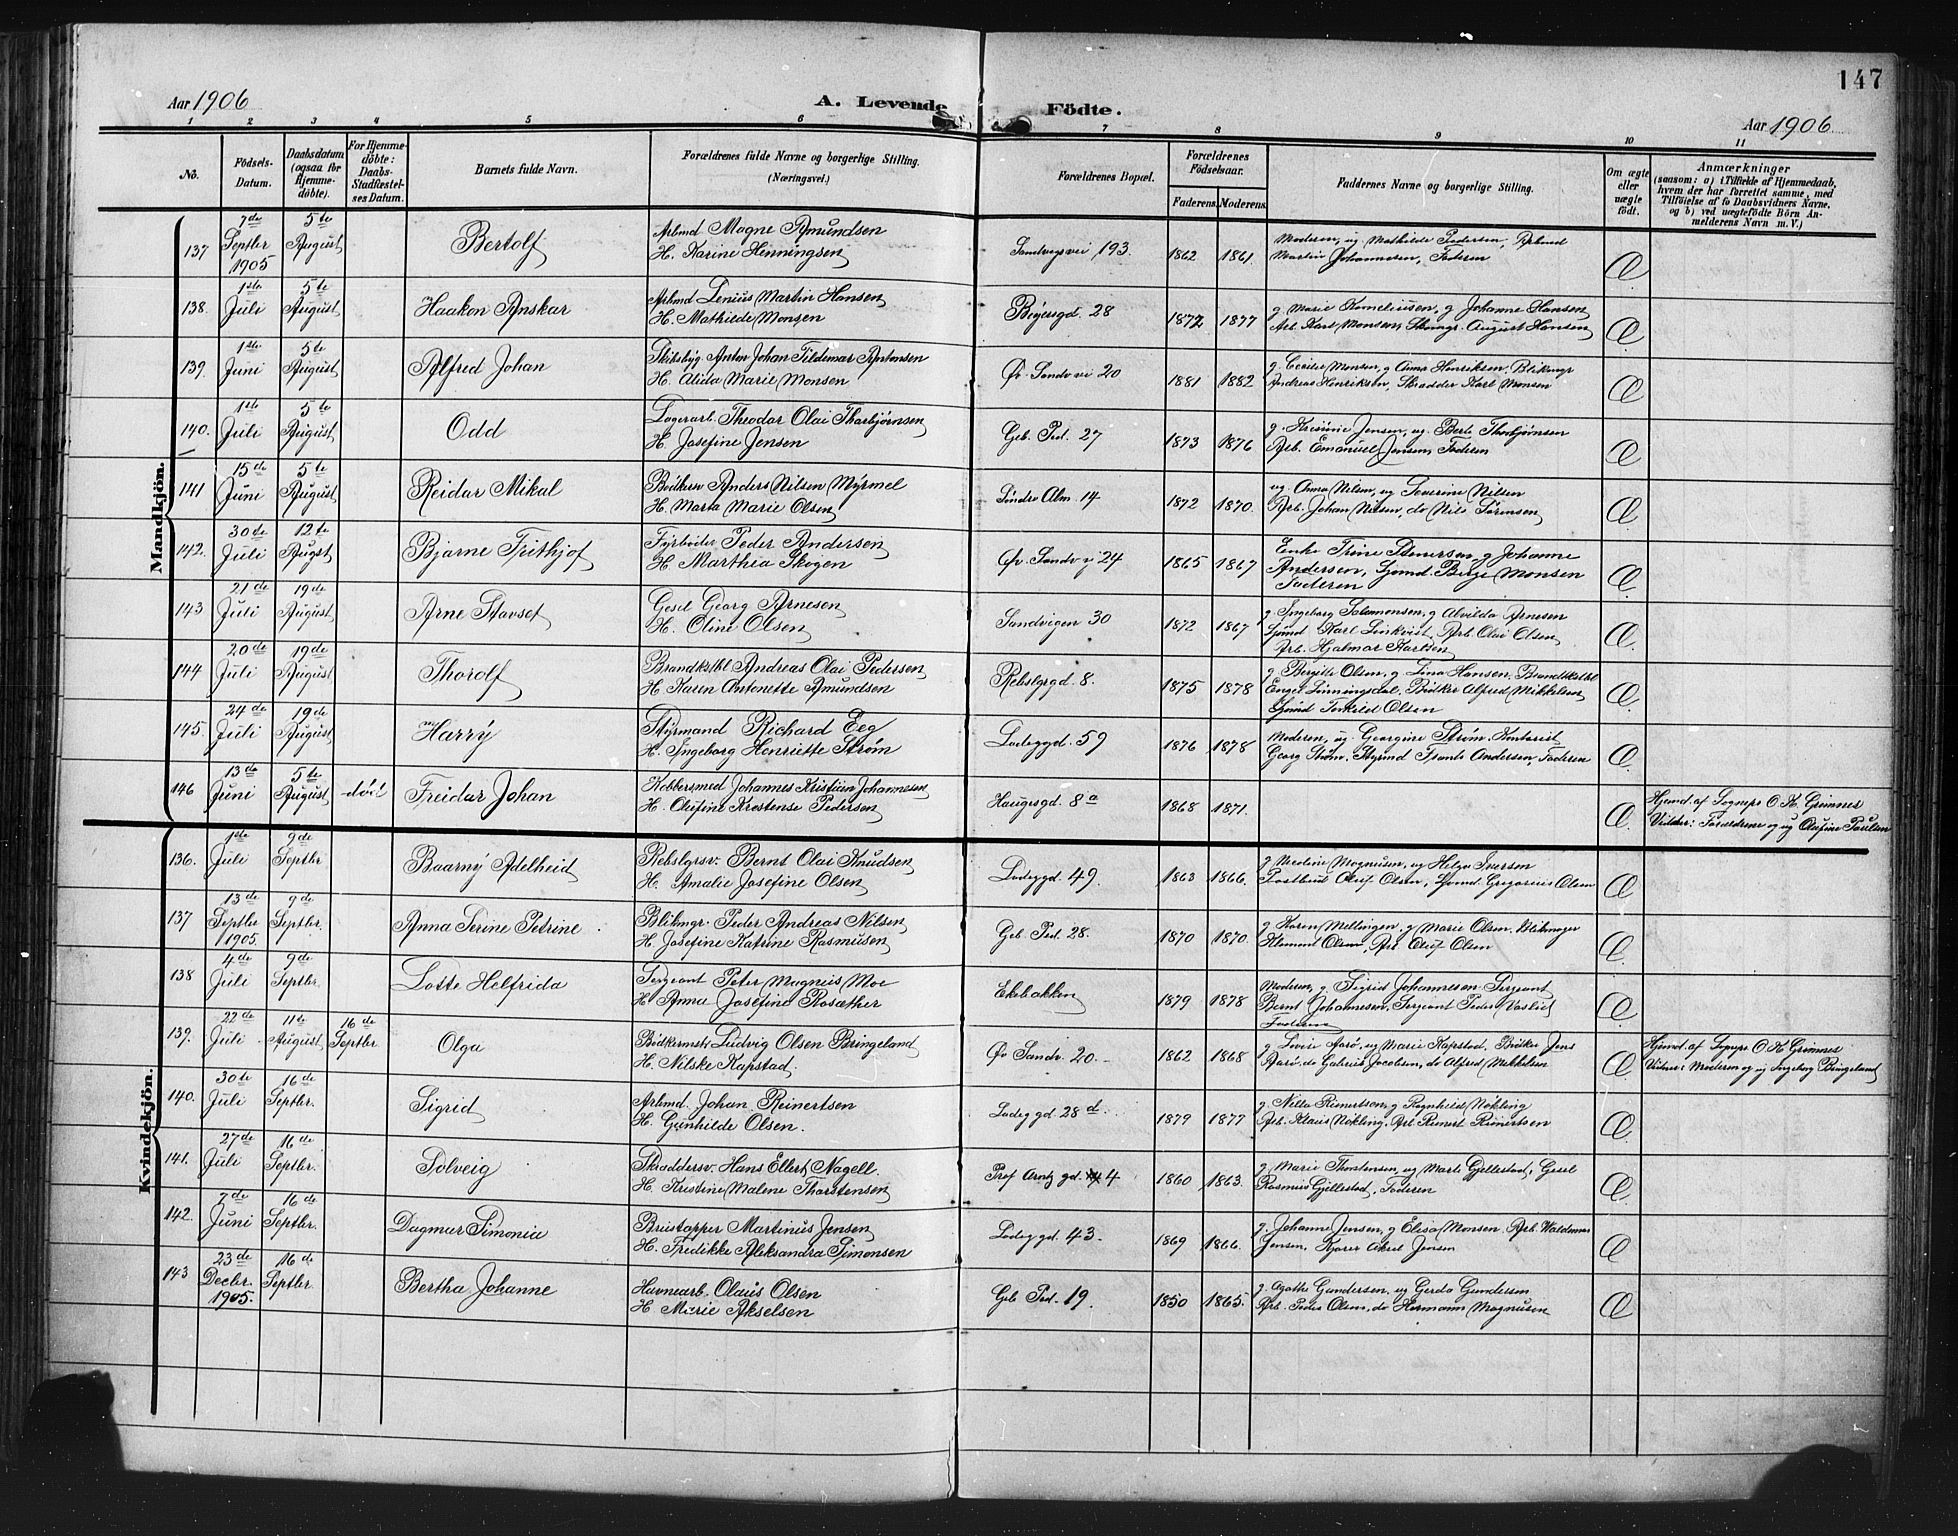 147
Aar 1906
A. Levende Födte.
Aar 1906
1 2 3 4 5 6 7 8 9 10 11
No.
Födsels-
Datum.
Daabsdatum
(ogsaa for
Hjemme-
döbte).
For Hjemme-
döbte:
Daabs-
Stadfæstel-
ses Datum.
Barnets fulde Navn.
Forældrenes fulde Navne og borgerlige Stilling.
(Næringsvei.)
Forældrenes Bopæl.
Forældrenes
Födselsaar.
Faderens. Moderens.
Faddernes Navne og borgerlige Stilling.
Om ægte
eller
uægte
födt.
Anmærkninger
(saasom: a) i Tilfælde af Hjemmedaab,
hvem der har forrettet samme, med
Tilföielse af to Daabsvidners Navne,
og b) ved uægtefödte Börn An-
melderens Navn m. V.)
Mandkjön.
137 7de Septbr 1905 5te August Bertolf
Arbmd Mogne Amundsen
H. Karine Henningsen
Sandvigsvei 193. 1862 1861.
Moderen, ug Mathilde Pedersen, Arbmd
Martin Johannesen, Faderen
Æ
138. 1ste Juli 5te August Haakon Anskar
Arbmd Lenius Martin Hansen
H. Mathilde Monsen
Bøgersgd. 28 1872 1877
g. Marie Korneliusen, g Johanne Hansen
Arb. Karl Monsen, Skomgr. August Hansen
Æ
139. 1ste Juni 5te August Alfred Johan
Skibsbyg. Anton Johan Tildemar Antonsen
H. Alida Marie Monsen
Øv. Sandv. vei 20 1881 1882
g. Cecilie Monsen, g Anna Henriksen, Blikmgr
Andreas Henriksen, Skrædder Karl Monsen
Æ
140. 1ste Juli 5te August Odd
Lagerarb. Theodor Olai Thorbjørnsen
H. Josefine Jensen
Geb. Ped. 27 1873 1876
g. Kristine Jensen, ug. Berte Thorbjørnsen
Arb. Emanuel Jensen, Faderen
Æ
141 15de Juni 5te August Reidar Mikal
Bødkersv. Anders Nilsen Myrmel
H. Marta Marie Olsen
Søndre Alm. 14 1872 1870.
ug. Anna Nilsen, ug Severine Nilsen
Arb. Johan Nilsen, do Nils Sørensen
Æ
142. 30de Juli 12te Augst Bjarne Frithjof
Fyrbøder Peder Andersen
H. Marthea Skogen
Øv. Sandv. v. 24 1865 1867
Enke Trine Stenersen, g Johanne
Andersen, Sjømd. Birger Monsen
Faderen
Æ
143 21de Juli 19de August Arne Stavset
Gesel Georg Arnesen
H. Oline Olsen
Sandvigen 30 1872 1867
g. Ingeborg Salomonsen, g Alvilda Arnesen
Sjømd Karl Linkvist, Arb. Olai Olsen
Arb. Hjalmar Karlsen
Æ
144 20de Juli 19de August Thorolf
Brandkstbl Andreas Olai Pedersen
H. Karen Antonette Amundsen
Rebslgrgd. 8. 1875 1878
g Bergitte Olsen, g Lina Hansen, Brandtkstbl
Enge Linningsdal, Bødker Alfred Mikkelsen
Sjømd Torkild Olsen
Æ
145. 24de Juli 19de August Harry
Styrmand Richard Eeg
H. Ingeborg Henriette Strøm
Ladeggd. 59 1876 1878
Moderen, ug. Georgine Strøm, Kontorist
Georg Strøm, Styrmd Frantz Andersen, Faderen
Æ
146 13de Juni 5te August død Freidar Johan
Kobbersmed Johannes Kristian Johannesen
H. Olufine Krestense Pedersen
Haugesgd. 8a 1868 1871.
Æ
Hjemd. af Sognepr. O. K. Grimnes
Vidner: Forældrene og ug Olufine Paulsen
Kvindekjön.
136. 1ste Juli 9de Septbr Baarny Adelheid
Rebslgrsv. Bernt Olai Knudsen
H. Amalie Josefine Olsen
Ladeggd. 49. 1863 1866.
g Nicoline Magnusen, ug Helga Iversen
Postbud Oluf Olsen, Sjømd. Gregorius Olsen
Æ
137 13de Septbr 1905. 9de Septbr. Anna Serine Petrine
Blikmgr. Peder Andreas Nilsen
H. Josefine Katrine Rasmusen
Geb. Ped. 28. 1870 1870.
g. Karen Mellingen, g Marie Olsen, Blikmager
Klemend Olsen, Arb Oluf Olsen
Æ
138 4de Juli 9de Septbr. Lotte Helfrida
Sergeant Peter Magnus Moe
H. Anna Josefine Rosæther
Ekebakken 1879 1878
Moderen, g. Sigrid Johannesen, Sergeant
Bernt Johannesen, Sergeant Peder Vaslid
Faderen
Æ
139. 22de Juli 11te August 16de Septbr Olga
Bødkermstr. Ludvig Olsen Bringeland
H. Nilske Kapstad.
Øv Sandv. 20. 1862 1868
g Lovise Aarø, ug Marie Kapstad, Bødker Jens
Aarø, do Gabriel Jacobsen, do Alfred Mikkelsen
Æ
Hjemd. af Sognepr O. K Grimnes
Vidner: Moderen og ug Ingeborg Bringeland
140. 30te Juli 16de Septbr. Sigrid
Arbmd Johan Reinertsen
H. Gunhilde Olsen.
Ladeggd. 28d. 1879 1877
g. Nilla Reinertsen, g Ragnhild Nøkling
Arb. Klaus Nøkling, Arb. Reinert Reinertsen
Æ
141. 27de Juli 16de Septbr. Solveig
Skræddersv. Hans Ellert Nagell.
H. Kristine Malene Thorstensen
Prof Arntz gd. 4 1860 1863.
g. Marie Thorstensen, ug Marte Gjellestad, Gesel
Rasmus Gjellestad, Faderen
Æ
142. 7de Juni 16de Septbr. Dagmar Simonia
Bristapper Martinus Jensen
H. Fredikke Aleksandra Simonsen
Ladeggd. 43. 1869 1866.
g. Johanne Jensen, g Elisa Monsen. Arb. Waldemar
Jensen, Kjører Aksel Jensen
Æ
143 23de Decbr. 1905. 16de Septbr. Bertha Johanne
Havnearb. Olaus Olsen
H Marie Akselsen
Geb Ped. 19. 1850 1865.
g. Agathe Gundersen, ug Gerda Gundersen
Arb. Peder Olsen, do Hermann Magnusen
Æ